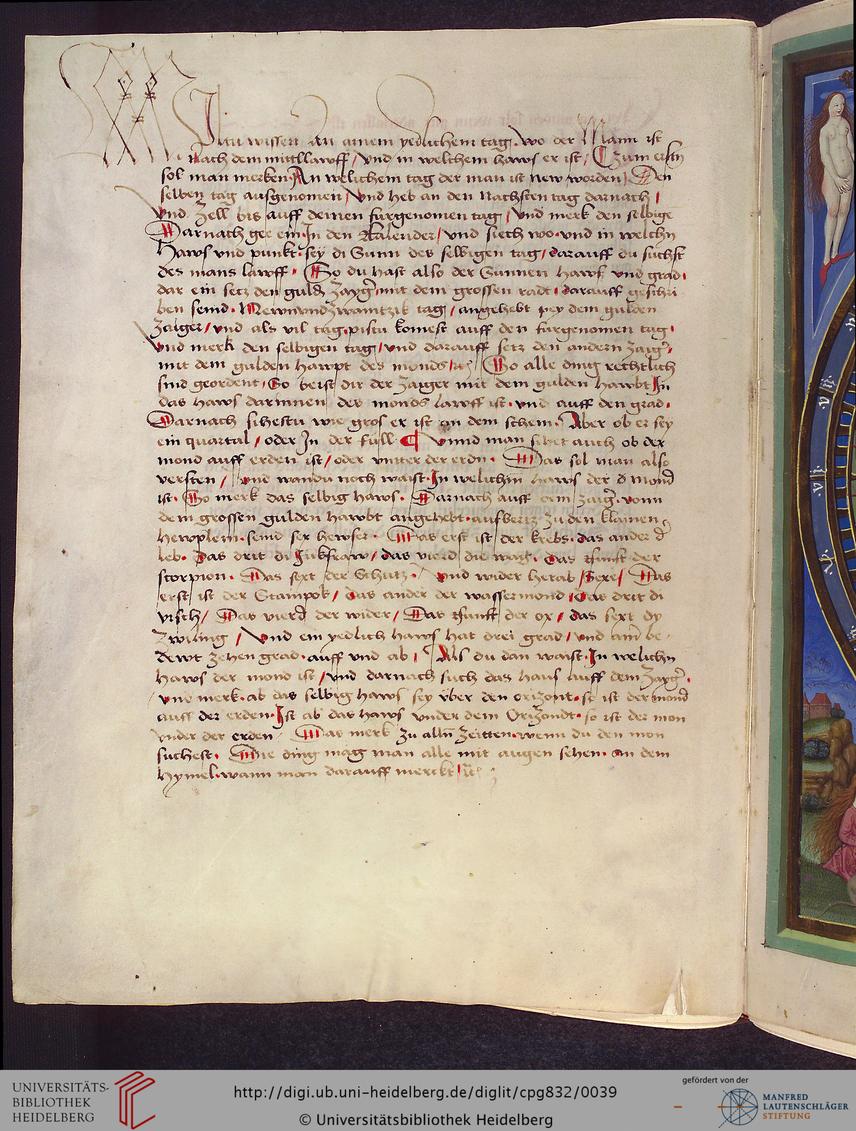 Wiltu wissen An ainem yedlichem tag. wo der Mann ist
Nach dem mittllawff / Vnd in welchem haws er ist / Zum ersten
sol man merken. An welichem tag der man ist new worden / Den
selben tag ausgenomen / Vnd heb an den Nachsten tag darnach /
Vnd Zell bis auff deinen furgenomen tag / Vnd merk den selbige
Darnach gee ein. In den Kalender / Vnd siech wo. vnd in welchn
Haws vnd punkt. sey di Sunn des selbigen tag / darauff du suchst
des mans lawff. So du hast also der Sunnen haws vnd grad.
dar ein setz den guldn Zaygr. mit dem grossen radt. darauff geschri
ben send. Newnvndzwaintzik tag / angehebt pey dem gulden
Zaiger / Vnd als vil tag. pistu komest auff den furgenomen tag.
Vnd merk den selbigen tag / Vnd darauff setz den andern Zaigr.
mit dem gulden hawpt des monds / Wo alle ding rechtlich
sind geordent / So weist dir der Zaiger mit dem gulden hawbt In
das haws darinnen des monds lawff ist. vnd auff den grad.
Darnach sihestu wie gros er ist an dem schein. Aber ob er sey
ein quartal / oder In der full. Vnnd man sihet auch ob der
mond auff erden ist / oder vntter der erdn. Das sol man also
versten / Vnd wandu noch waist. In welichm haws der mond
ist. So merk das selbig haws. Darnach auff dem Zaigr. vonn
dem grossen gulden hawbt angehebt. aufbertz zu den klainen
Hewplein. seind sex hewser. Das erst ist der krebs. das ander d
leb. Das drit di Junkfraw / das vierd die wag. Das funft der
scorpion. Das sext der Schutz. Vnd wider herab / Sexe / Das
erst ist der Stainpok / Das ander der wassermond. Das drit di
visch / Das vierd der wider / Das funft der ox / das sext dy
Zwiling / Vnd ein yedlich haws hat drei grad / vnd ainr be
dewt zehen grad. auff vnd ab / Als du dan waist. In welichn
Haws der mond ist / vnd darnach such das haus auff dem Zaygr.
vnd merk. ab das selbig haws sey vber den orizont. so ist der mond
auff der erden. Ist ab das haws vnder dem Orizondt. so ist der mon
vnder der erden. Das merk zu alln Zeitten. wenn du den mon
suchest. Die ding mag man alle mit augen sehen. an dem
Hymel. wann man darauff merckt /
UNIVERSITÄTS-
BIBLIOTHEK
HEIDELBERG
http://digi.ub.uni-heidelberg.de/diglit/cpg832/0039
© Universitätsbibliothek Heidelberg
gefördert von der
MANFRED
LAUTENSCHLÄGER
STIFTUNG